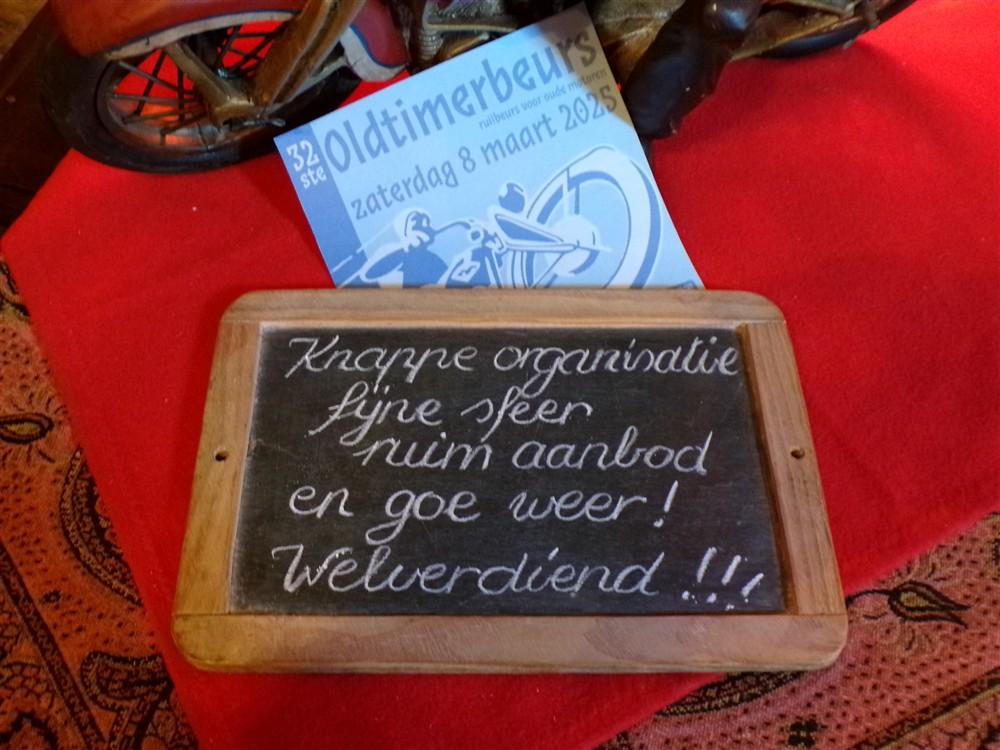 32
ste
Oldtimerbeurs
ruilbeurs voor oude motoren
zaterdag 8 maart 2025
Knappe organisatie
fijne sfeer
ruim aanbod
en goe weer!
Welverdiend !!!